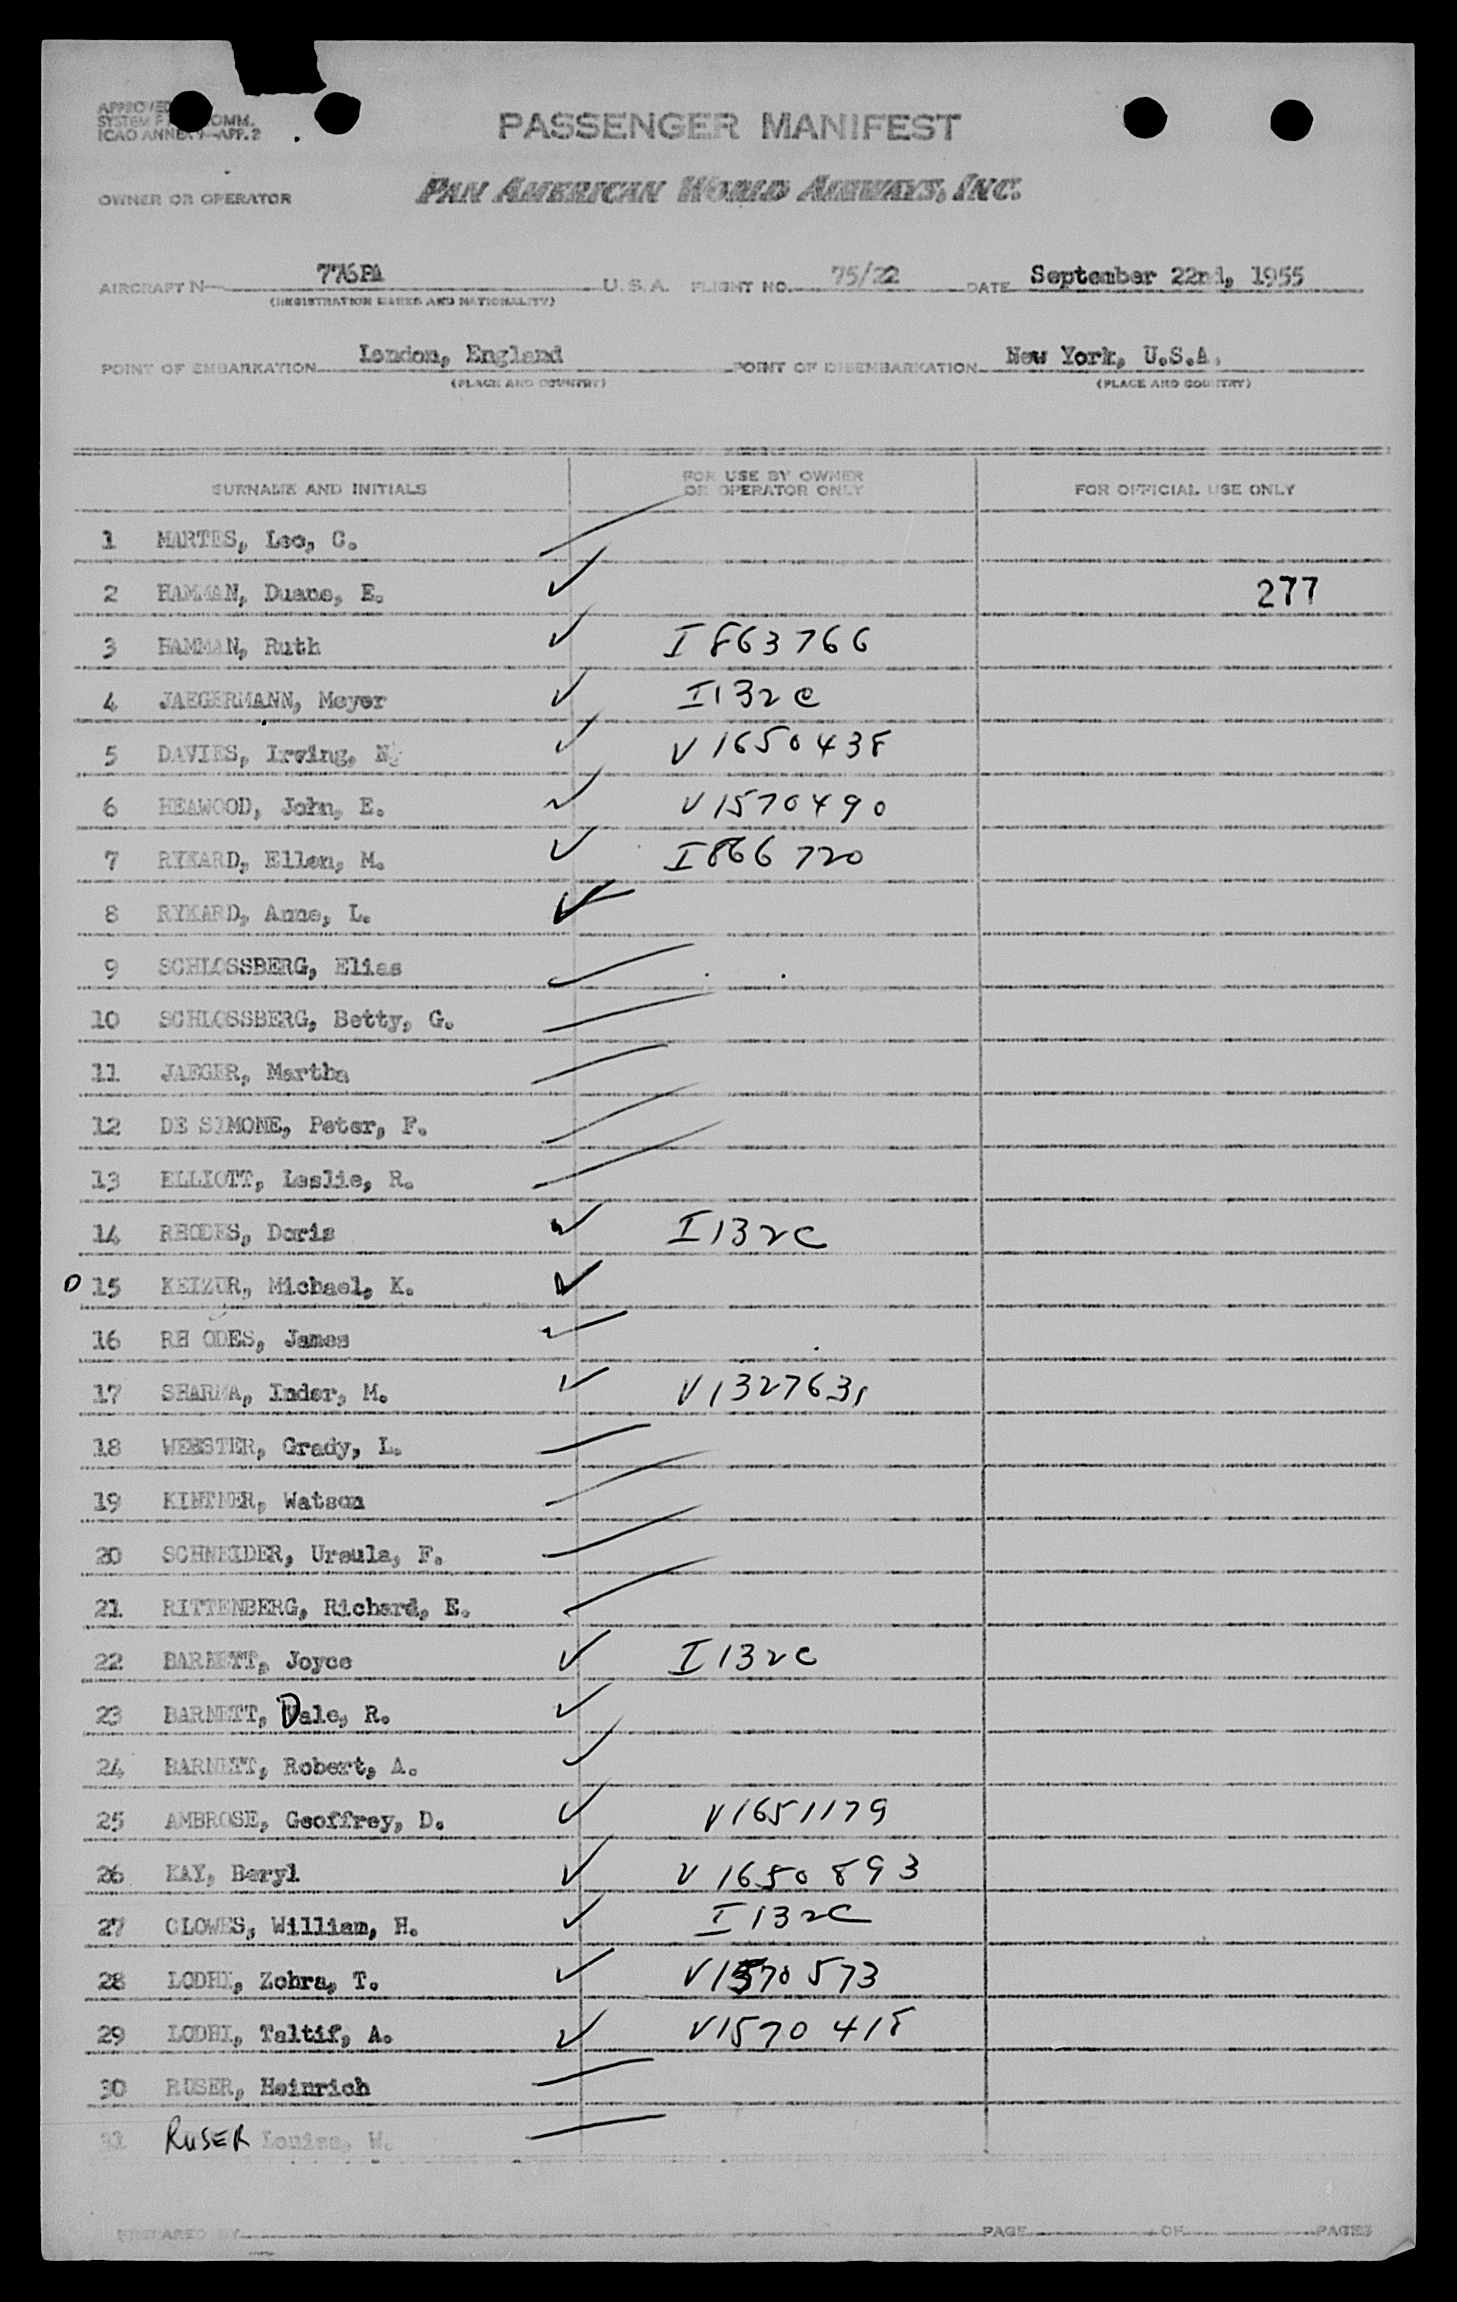 APPROVED
SYSTEM COMM.
ICAO ANNEX 9—APP. 2
PASSENGER MANIFEST
OWNER OR OPERATOR PAN AMERICAN WORLD AIRWAYS, INC.
AIRCRAFT N— 776PA U. S. A. FLIGHT NO. 75/22 DATE September 22nd, 1955
(REGISTRATION MARKS AND NATIONALITY)
POINT OF EMBARKATION London, England POINT OF DISEMBARKATION New York, U.S.A.
(PLACE AND COUNTRY) (PLACE AND COUNTRY)
SURNAME AND INITIALS FOR USE BY OWNER OR OPERATOR ONLY FOR OFFICIAL USE ONLY
1 MARTES, Leo, C.
2 HAMMAN, Duane, E. ✓ 277
3 HAMMAN, Ruth ✓ I 863766
4 JAEGERMANN, Meyer ✓ I132C
5 DAVIES, Irving, N. ✓ V1650438
6 HEAWOOD, John, E. ✓ V1570490
7 RYKARD, Ellen, M. ✓ I866720
8 RYKARD, Anne, L. ✓
9 SCHLOSSBERG, Elias
10 SCHLOSSBERG, Betty, G.
11 JAEGER, Martha
12 DE SIMONE, Peter, F.
13 ELLIOTT, Leslie, R.
14 RHODES, Doris ✓ I132C
O 15 KEIZUR, Michael, K. ✓
16 RH ODES, James
17 SHARMA, Inder, M. ✓ V1327631
18 WEBSTER, Grady, L.
19 KINTNER, Watson
20 SCHNEIDER, Ursula, F.
21 RITTENBERG, Richard, E.
22 BARNETT, Joyce ✓ I132C
23 BARNETT, Dale, R. ✓
24 BARNETT, Robert, A. ✓
25 AMBROSE, Geoffrey, D. ✓ V1651179
26 KAY, Beryl ✓ V1650893
27 CLOWES, William, H. ✓ I132C
28 LODHI, Zohra, T. ✓ V1570573
29 LODHI, Taltif, A. ✓ V1570418
30 RUSER, Heinrich
31 RUSER Louise, W.
PREPARED BY PAGE OF PAGES